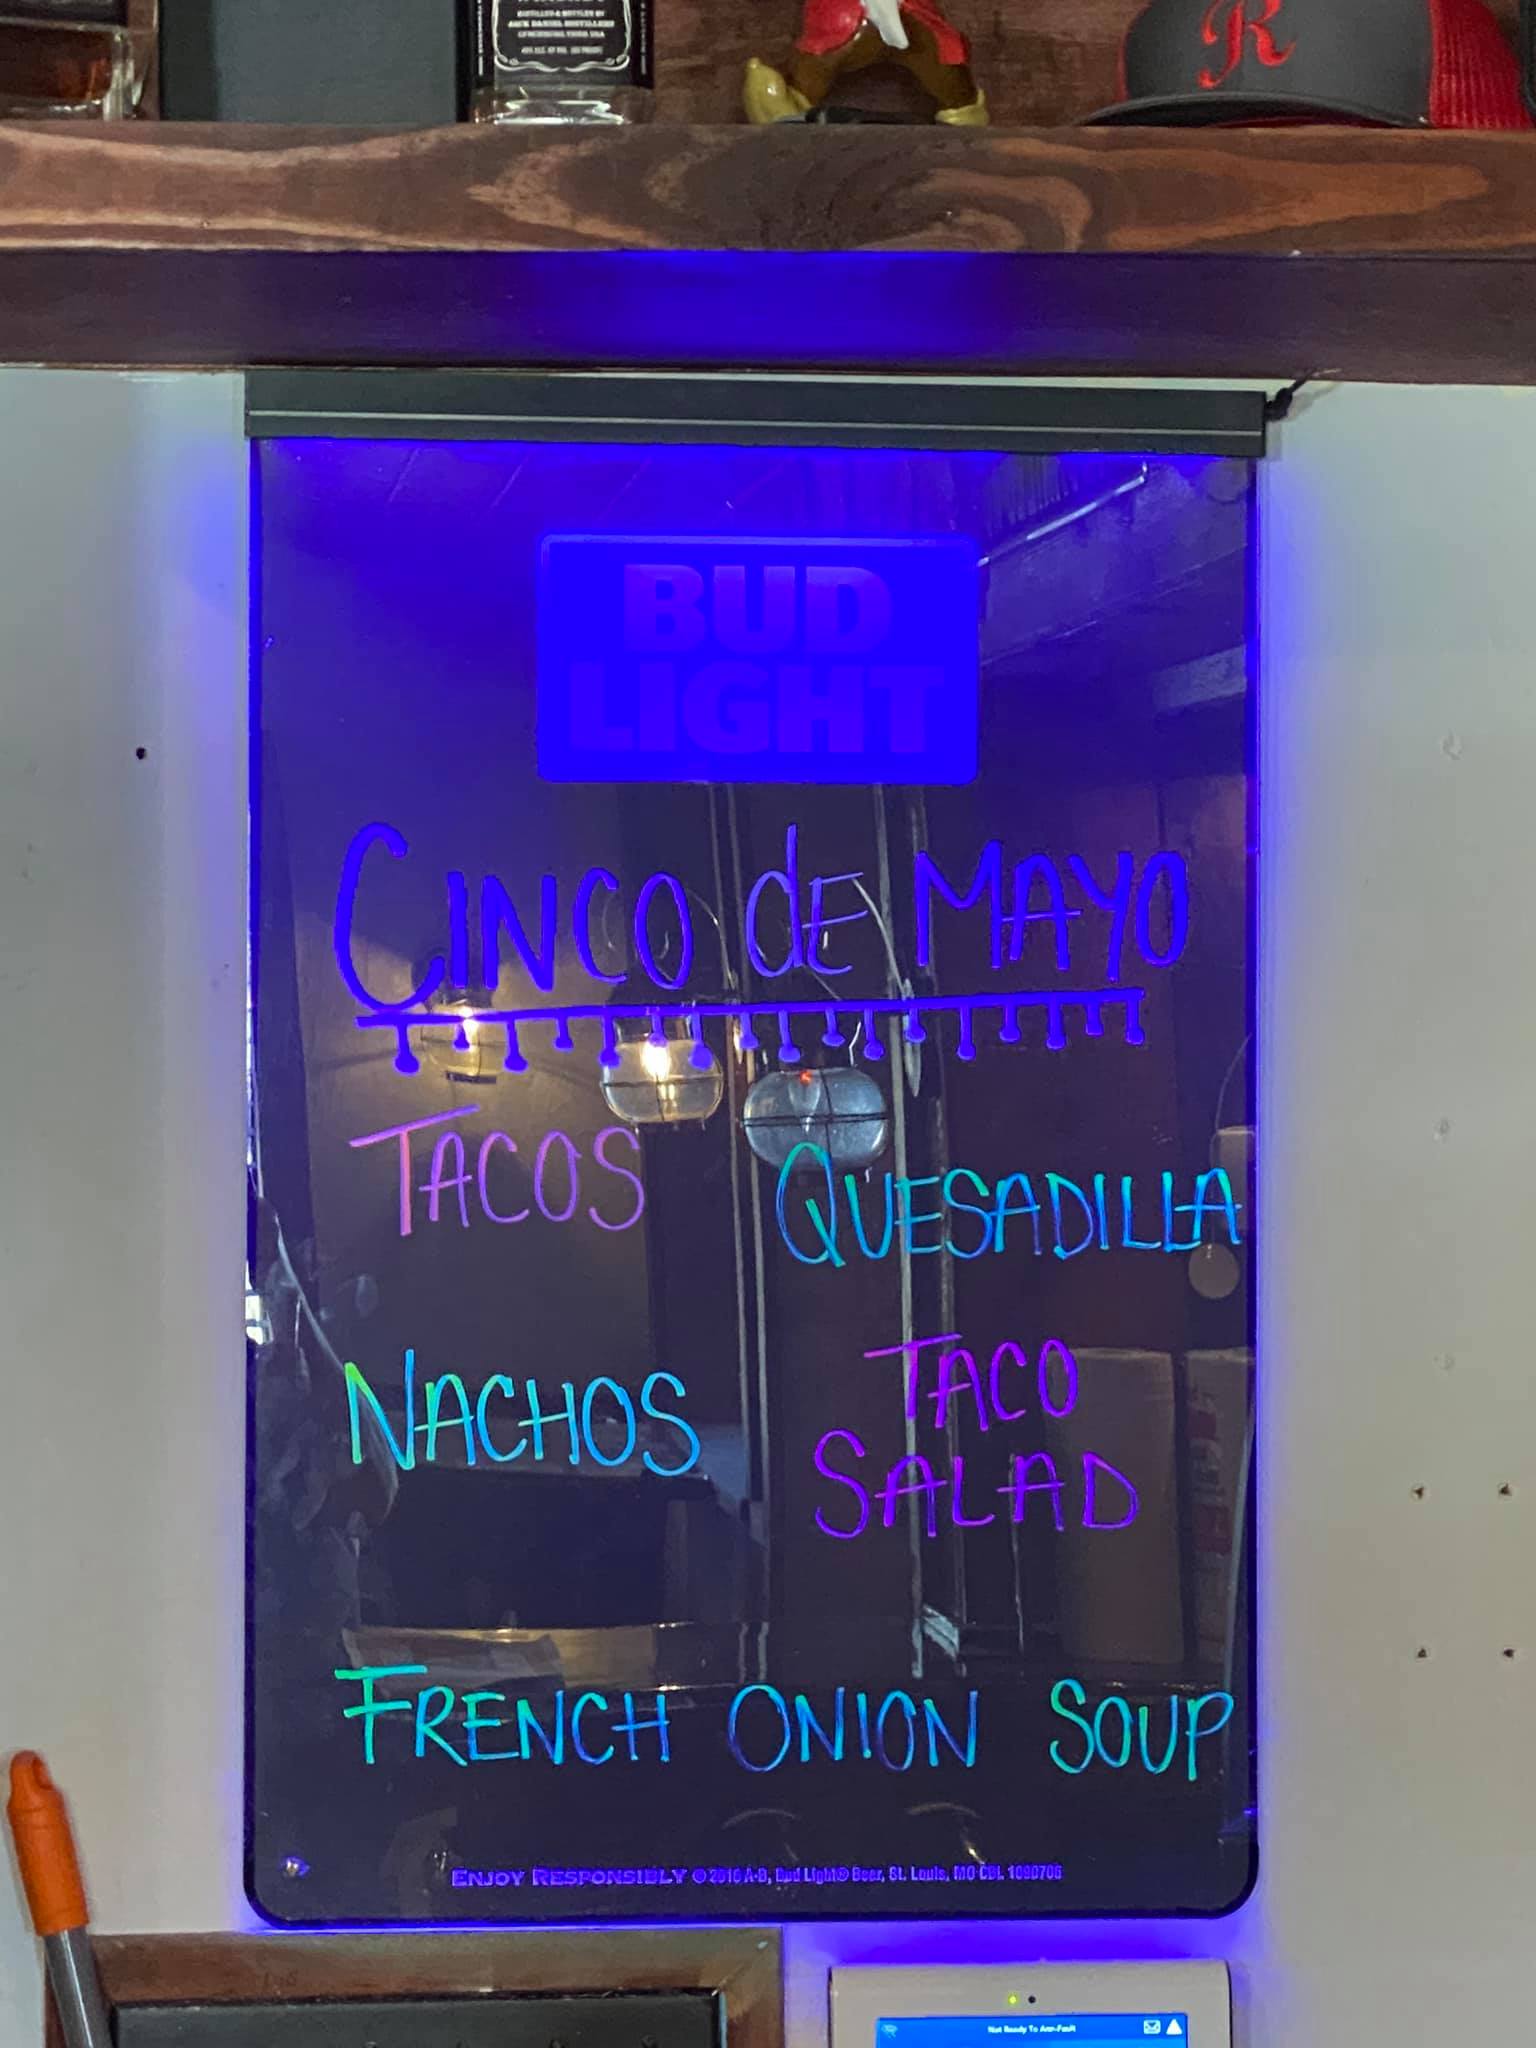 DISTILLED & BOTTLED BY
JACK DANIEL DISTILLERY
R
BUD
LIGHT
CINCO dE MAYO
TACOS
QUESADILLA
NACHOS
TACO
SALAD
FRENCH ONION SOUP
ENJOY RESPONSIBLY © 2016 A-B, Bud Light® Beer, St. Louis, MO
Not Ready To Arm-Fault